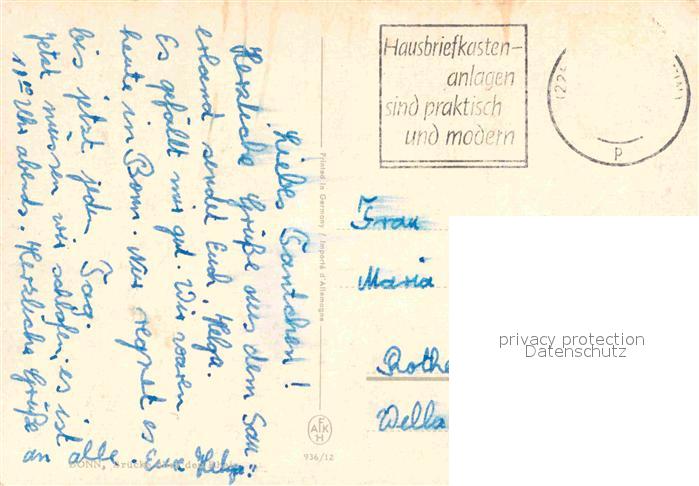 Liebes Tantchen!
Herzliche Grüße aus dem Sau=
erland sendet Euch Helga.
Es gefällt mir gut. Wir waren
heute in Bonn. Nur regnet es
bis jetzt jeden Tag.
Jetzt müssen wir schlafen, es ist
11 Uhr abends. Herzliche Grüße
an alle. Eure Helga
BONN,
Printed in Germany / Importé d'Allemagne
936/12
Hausbriefkasten-
anlagen
sind praktisch
und modern
P
Frau
Maria
Rothe
Wella
privacy protection
Datenschutz